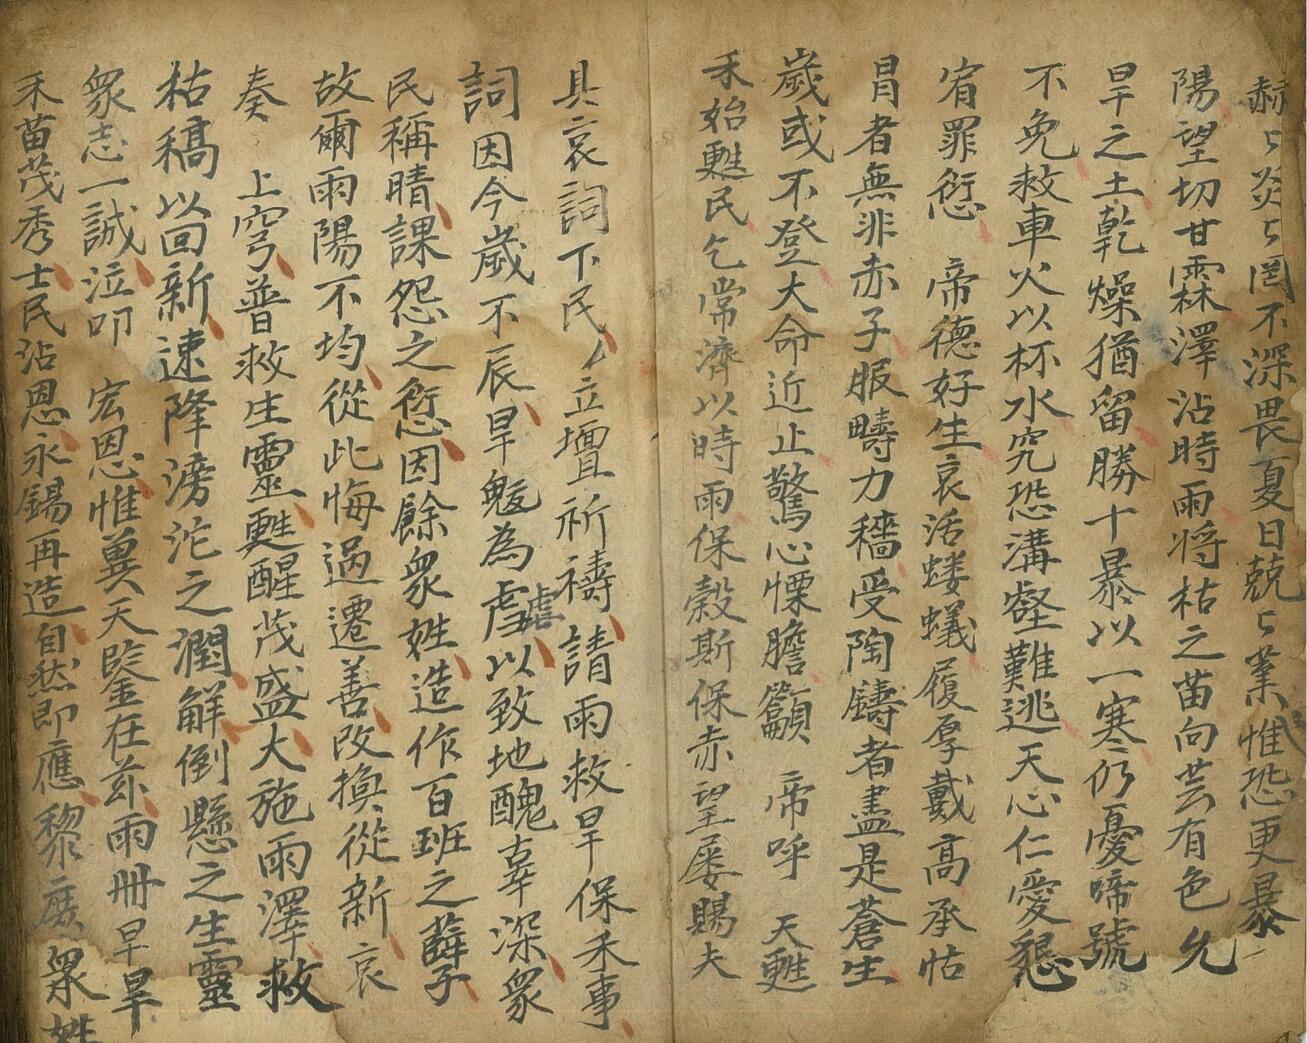 赫〻炎〻罔不深畏夏日兢〻業惟恐更暴
陽望切甘霖澤沾時雨将枯之苗向芸有色允
旱之土乾燥猶留勝十暴以一寒仍憂啼號
不免救車火以杯水究恐溝壑難逃天心仁愛懇
宥罪愆 帝德好生哀活蝼蟻履厚戴高承怙
冐者無非赤子服疇力穡受陶鑄者盡是蒼生
歲或不登大命近止驚心慄膽籲 帝呼 天甦
禾始甦民乞常濟以時雨保穀斯保赤望屡賜夫
具哀詞下民 立壇祈禱請雨救旱保禾事
詞因今歲不辰旱魃為虐虐以致地醜辜深衆
民稱晴課怨之愆因餘衆姓造作百班之孽
故爾雨陽不均從此悔過遷善改換從新哀
奏 上穹普救生靈甦醒茂盛大施雨澤救
枯稿以回新速降滂沱之潤解倒懸之生靈
衆志一誠泣叩 宏恩惟冀天鍳在茲雨冊早旱
禾苗茂秀士民沾恩永錫再造自然即應黎庶衆姓